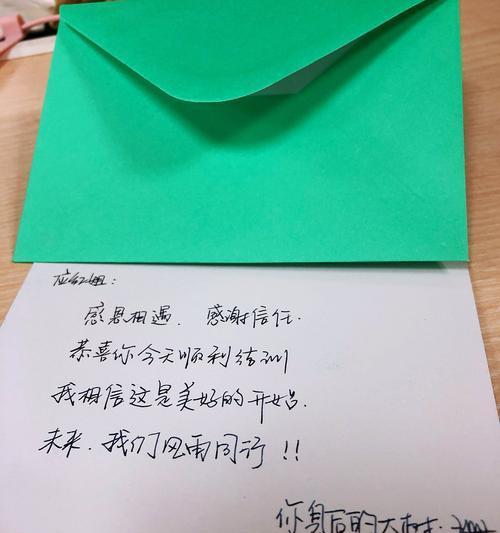 应红姐：
感恩相遇、感谢信任.
恭喜你今天顺利结训
我相信这是美好的开始.
未来、我们风雨同行!!
你身后的大树: